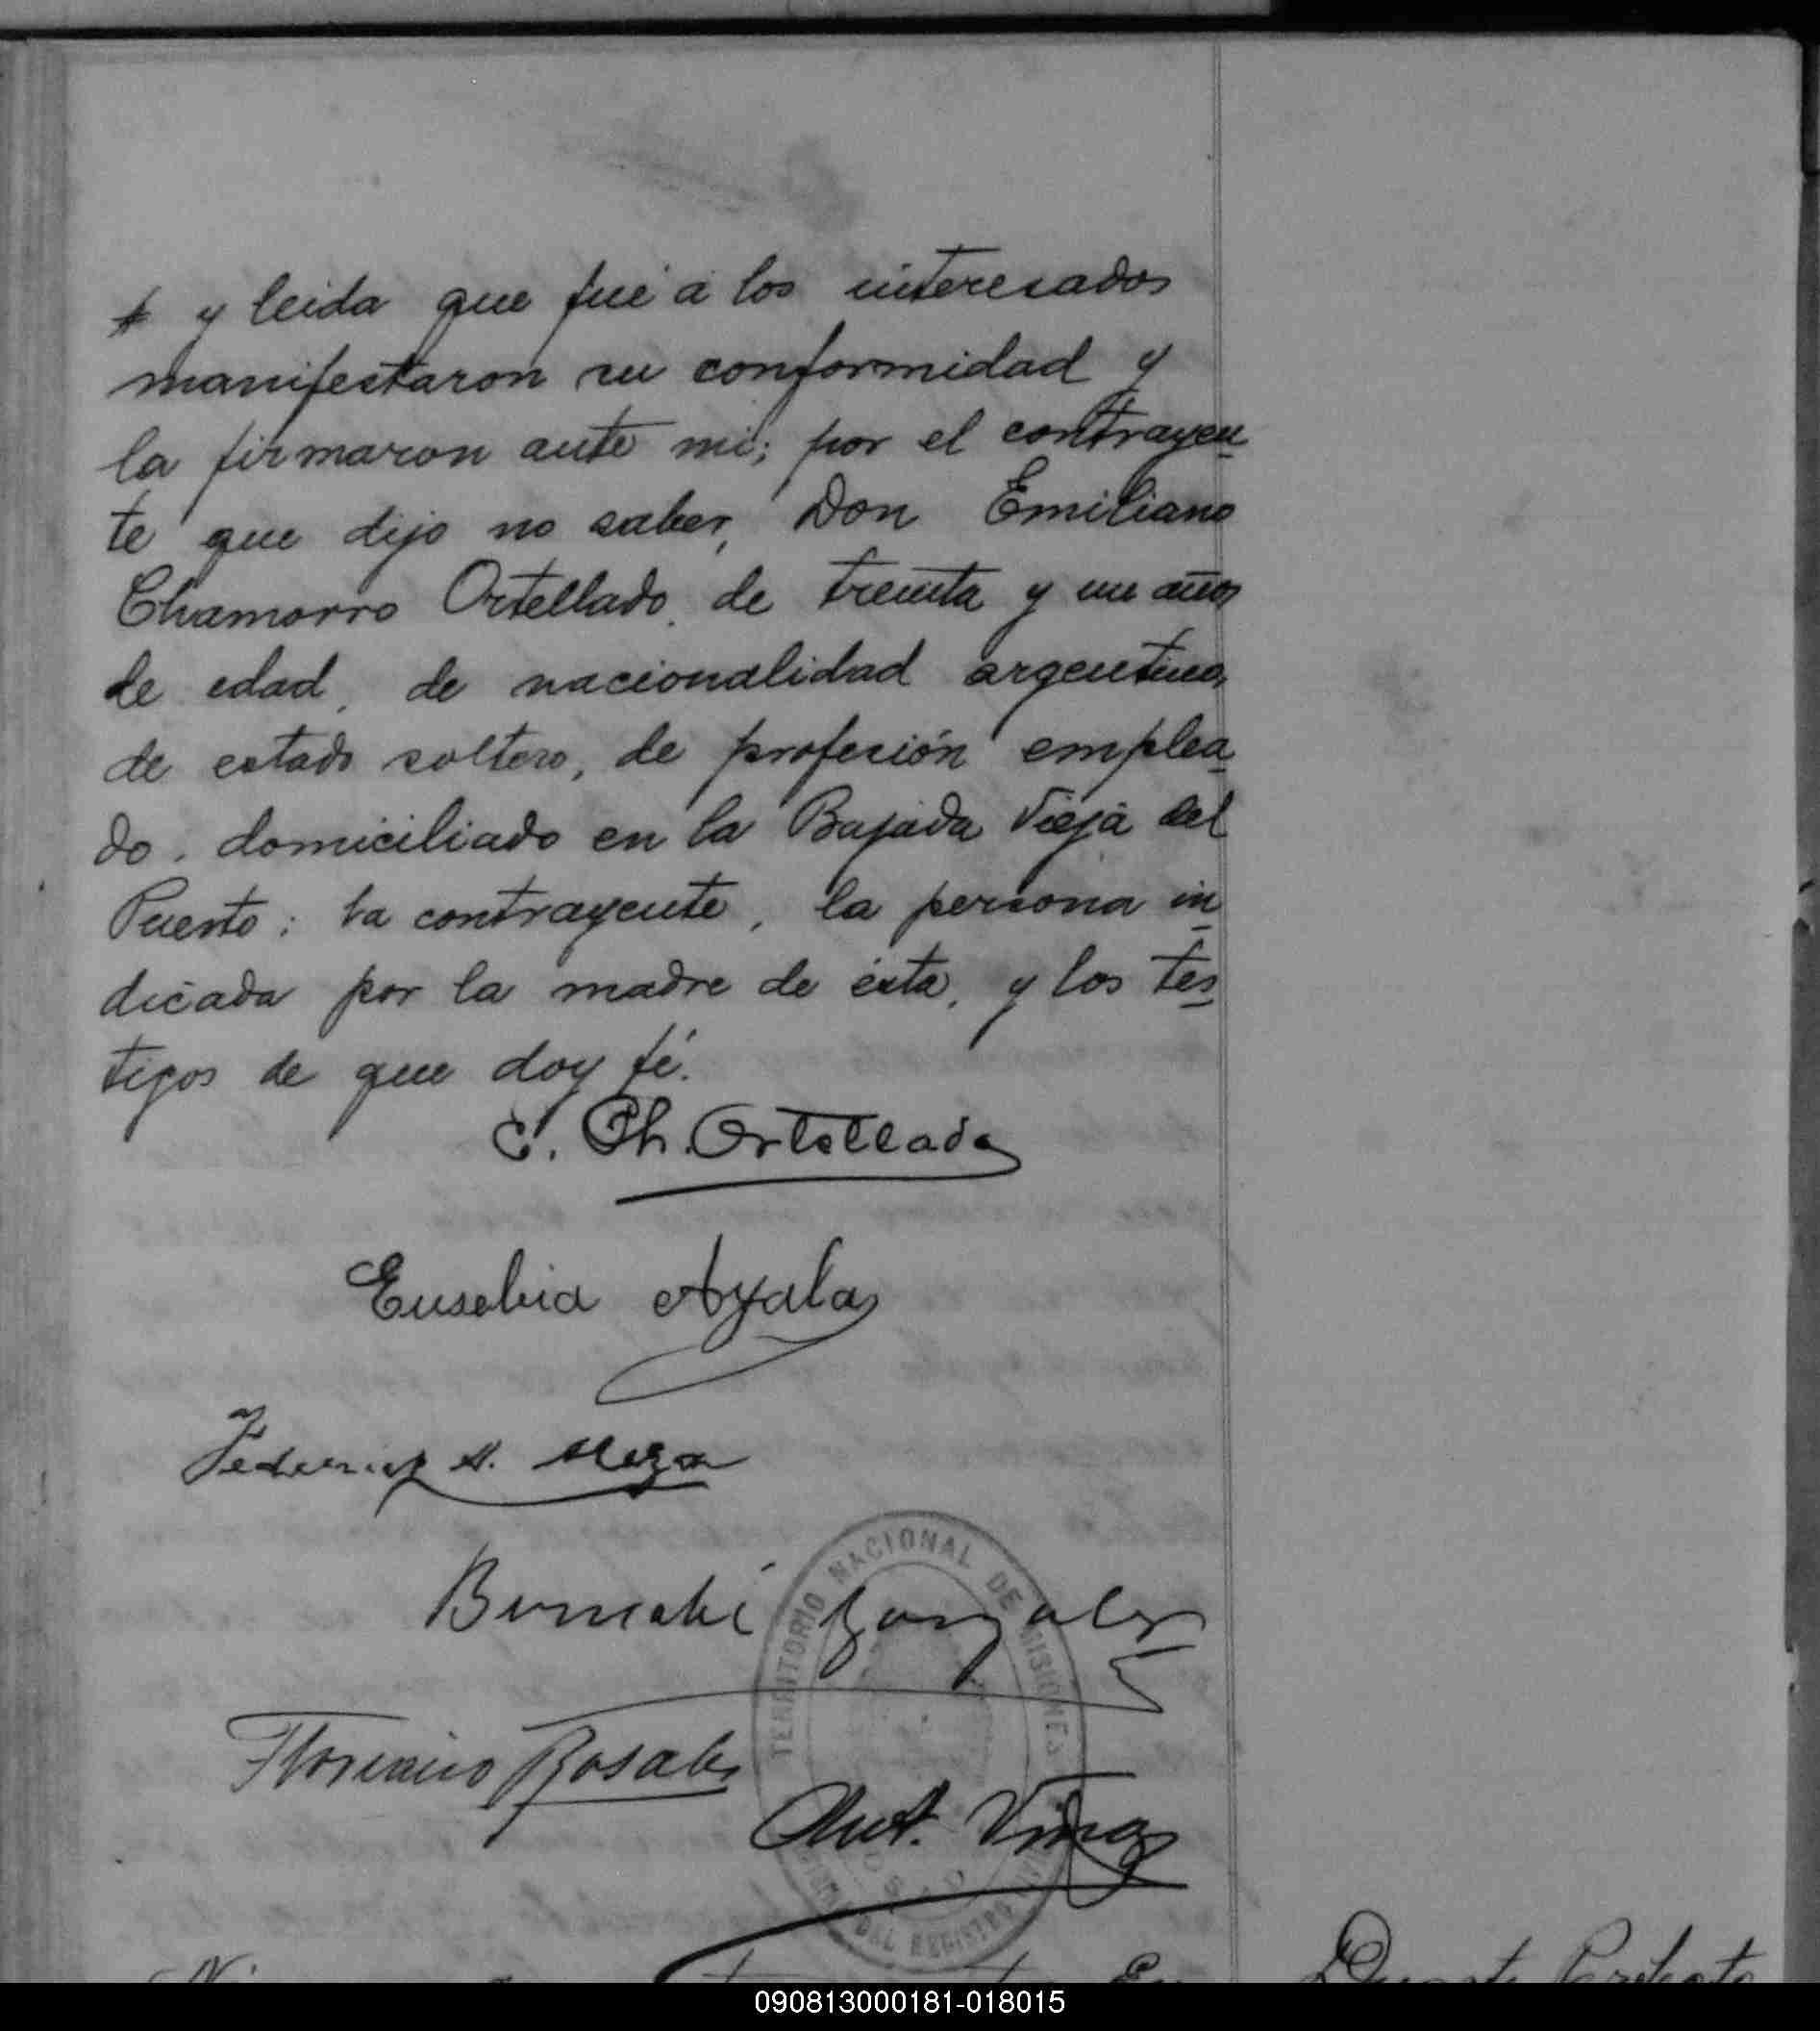 y leida que fué á los interesados
manifestaron su conformidad y
la firmaron ante mi; por el contrayen
te que dijo no saber, Don Emiliano
Chamorro Ortellado, de treinta y un años
de edad, de nacionalidad argentino,
de estado soltero, de profesión emplea
do, domiciliado en la Bajada Vieja del
Puerto; la contrayente, la persona in
dicada por la madre de ésta, y los tes
tigos de que doy fé.
E. Ch. Ortellado
Eusebia Ayala
Federico M. Meza
Bernabé Gonzalez
TERRITORIO NACIONAL DE MISIONES
Floriano Rosales
Ant.
DEL REGISTRO
Duarte
090813000181-018015